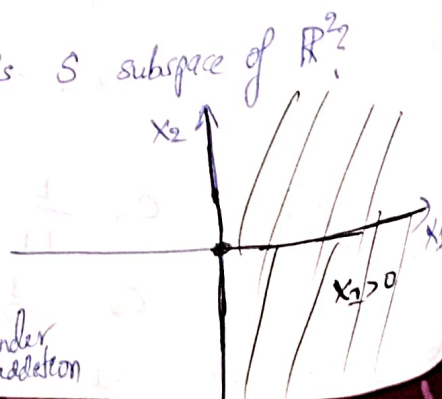 s S subspace of ℝ²?
x₂
x₁
x₁>0
nder
addetion